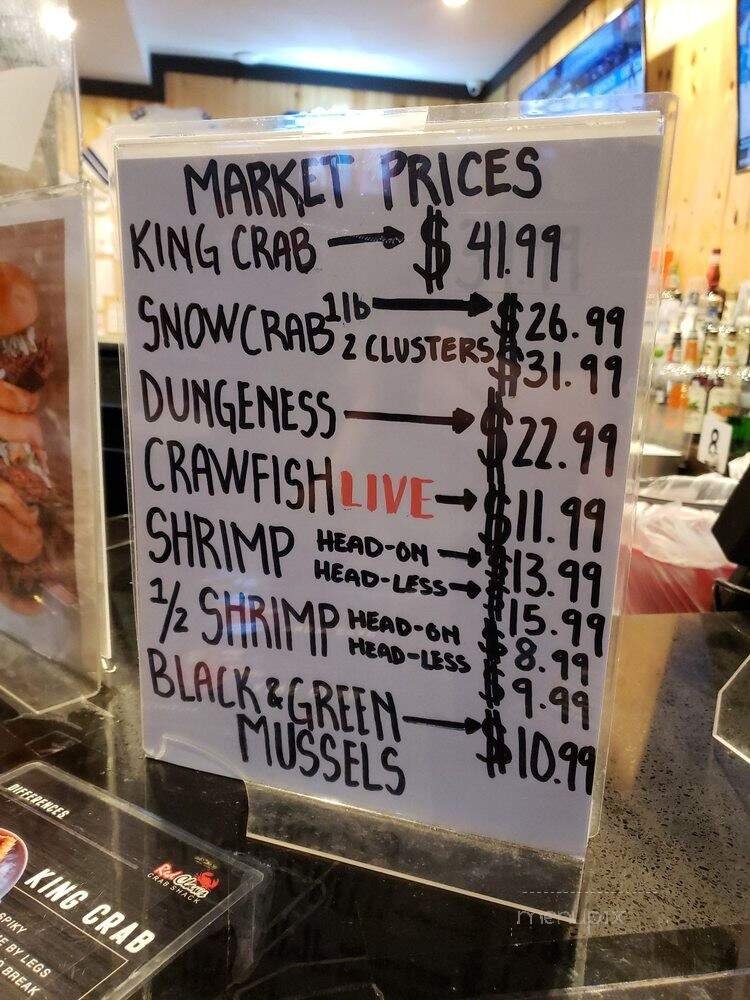 MARKET PRICES
KING CRAB → $ 41.99
SNOWCRAB 1lb → $26.99
2 CLUSTERS $31.99
DUNGENESS → $22.99
CRAWFISH LIVE → $11.99
SHRIMP HEAD-ON → $13.99
HEAD-LESS → $15.99
1/2 SHRIMP HEAD-ON $8.99
HEAD-LESS $9.99
BLACK & GREEN → $10.99
MUSSELS
8
DIFFERENCES
KING CRAB
SPIKY
BY LEGS
BREAK
Red Claws
CRAB SHACK
menupix